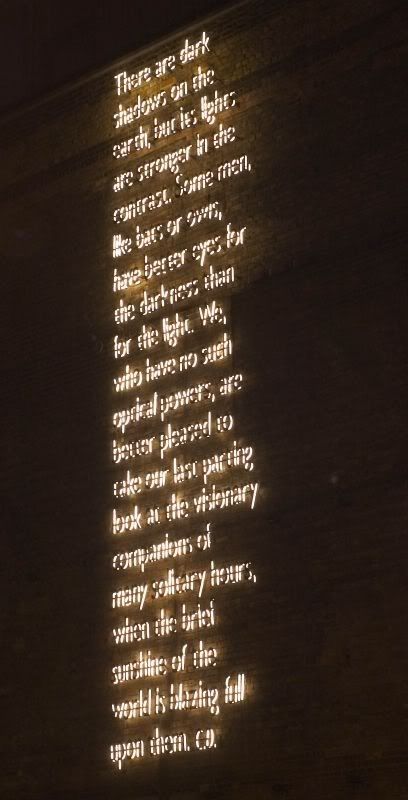 There are dark
shadows on the
earth, but its lights
are stronger in the
contrast. Some men,
like bats or owls,
have better eyes for
the darkness than
for the light. We,
who have no such
optical powers, are
better pleased to
take our last parting
look at the visionary
companions of
many solitary hours,
when the brief
sunshine of the
world is blazing full
upon them. C.D.